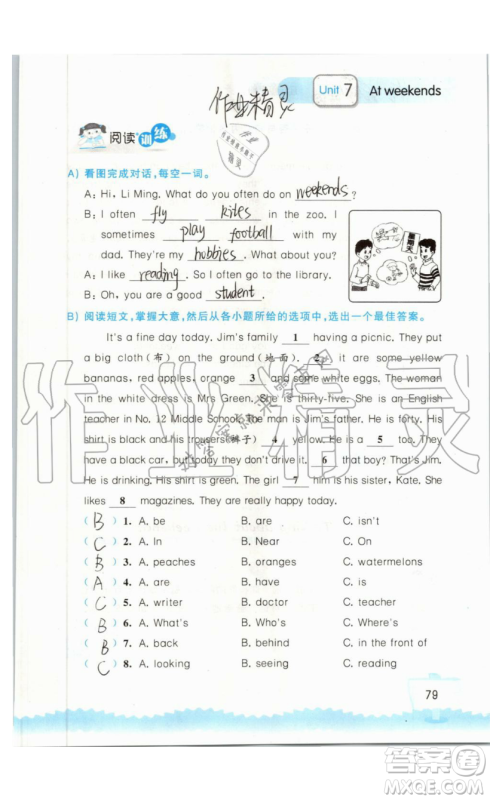 Unit 7 At weekends
作业精灵
阅读训练
A) 看图完成对话,每空一词。
A: Hi, Li Ming. What do you often do on weekends?
B: I often fly kites in the zoo. I
sometimes play football with my
dad. They're my hobbies.
A: I like reading. I often go to the library.
B: Oh, you are a good student.
B) 阅读短文,掌握大意,然后从各小题所给的选项中,选出一个最佳答案。
It's a fine day today. Jim's family 1 having a picnic. They
put a big cloth (布) on the ground (地面). 2 it are some yellow
bananas, red apples, orange 3 and some white eggs. The woman
in the white dress is Mrs Green. Mrs Green is thirty-five. She is an English
teacher in No 12 Middle School. The man is Mr Green. He is forty. His
shirt is black and his trousers (裤子) 4 yellow. He is a 5 too. He has
a black car, but today they don't drive it. 6 that boy? That's Jim.
He is drinking. His shirt is green. The girl 7 him is his sister, Kate. She
likes 8 magazines. They are really happy today.
( B ) 1. A. be B. are C. isn't
( C ) 2. A. In B. Near C. On
( B ) 3. A. peaches B. oranges C. watermelons
( A ) 4. A. are B. have C. is
( C ) 5. A. writer B. doctor C. teacher
( B ) 6. A. What's B. Who's C. Where's
( B ) 7. A. back B. behind C. in the front of
( C ) 8. A. looking B. seeing C. reading
79
作业精灵
答案圈